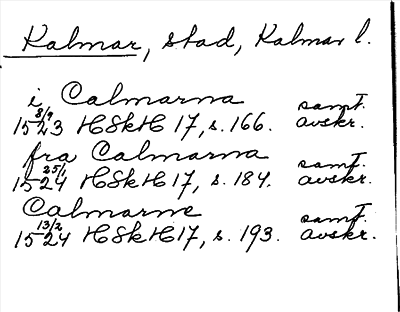 Kalmar, stad, Kalmar l.
i Calmarna samt.
15 8/9 23 HSkH 17, s. 166. avskr.
fra Calmarna samt.
15 25/1 24 HSkH 17, s. 184. avskr.
Calmarne samt.
15 13/2 24 HSkH 17, s. 193. avskr.